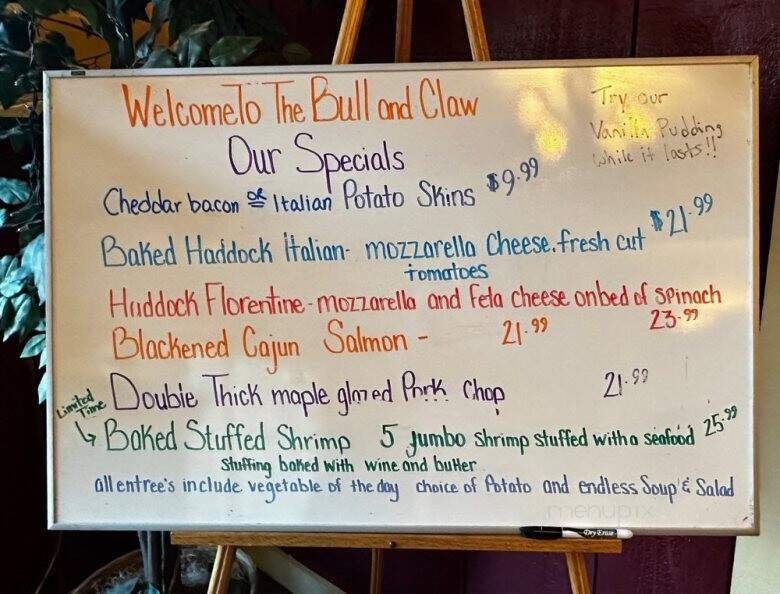 Welcome To The Bull and Claw
Try our
Vanilla Pudding
while it lasts!!
Our Specials
Cheddar bacon or Italian Potato Skins $9.99
Baked Haddock Italian- mozzarella Cheese. fresh cut $21.99
tomatoes
Haddock Florentine - mozzarella and feta cheese on bed of spinach
23.99
Blackened Cajun Salmon - 21.99
Double Thick maple glazed Pork Chop 21.99
Limited
Time
Baked Stuffed Shrimp 5 jumbo shrimp stuffed with a seafood 25.99
Stuffing baked with wine and butter
all entree's include vegetable of the day choice of Potato and endless Soup & Salad
menupix
Dry Erase